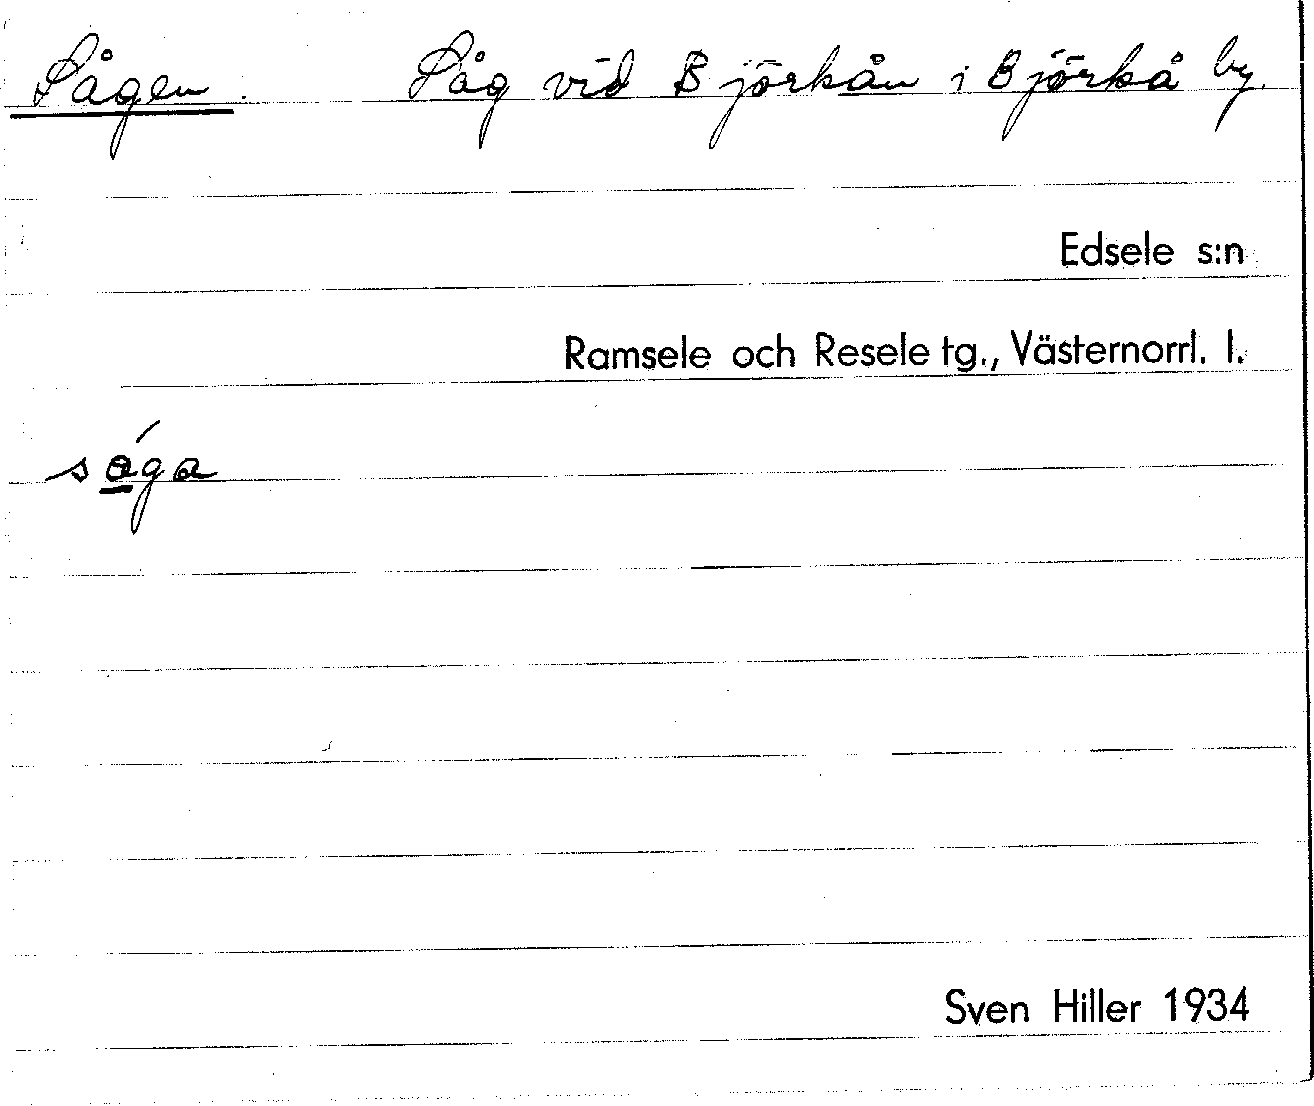 Sågen. Såg vid Björkån i Björkå by.
Edsele s:n
Ramsele och Resele tg., Västernorrl. l.
Sven Hiller 1934